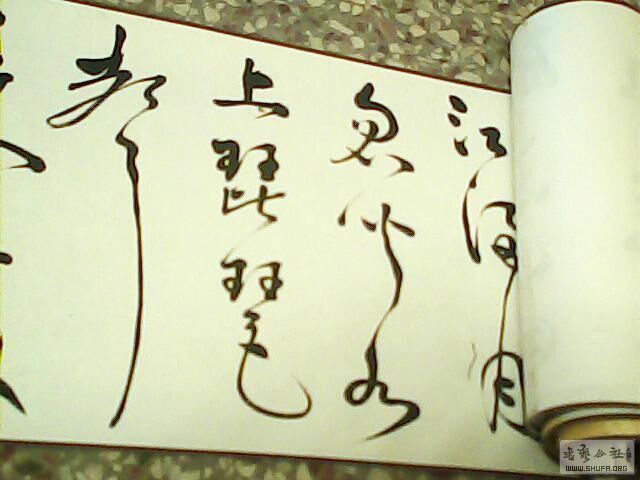 江浸月
忽闻水
上琵琶
声
书艺公社
WWW.SHUFA.ORG